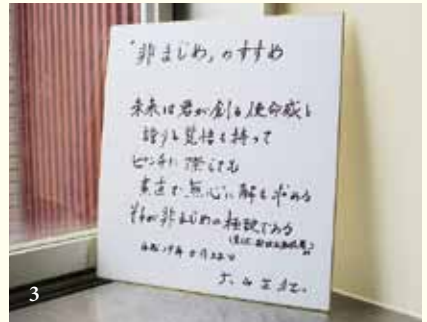 「非まじめ」のすすめ
未来は君が創る使命感と
誇りと覚悟を持って
ピンチに際しても
素直で無心に解を求める
それが非まじめの極致である
平成19年
3